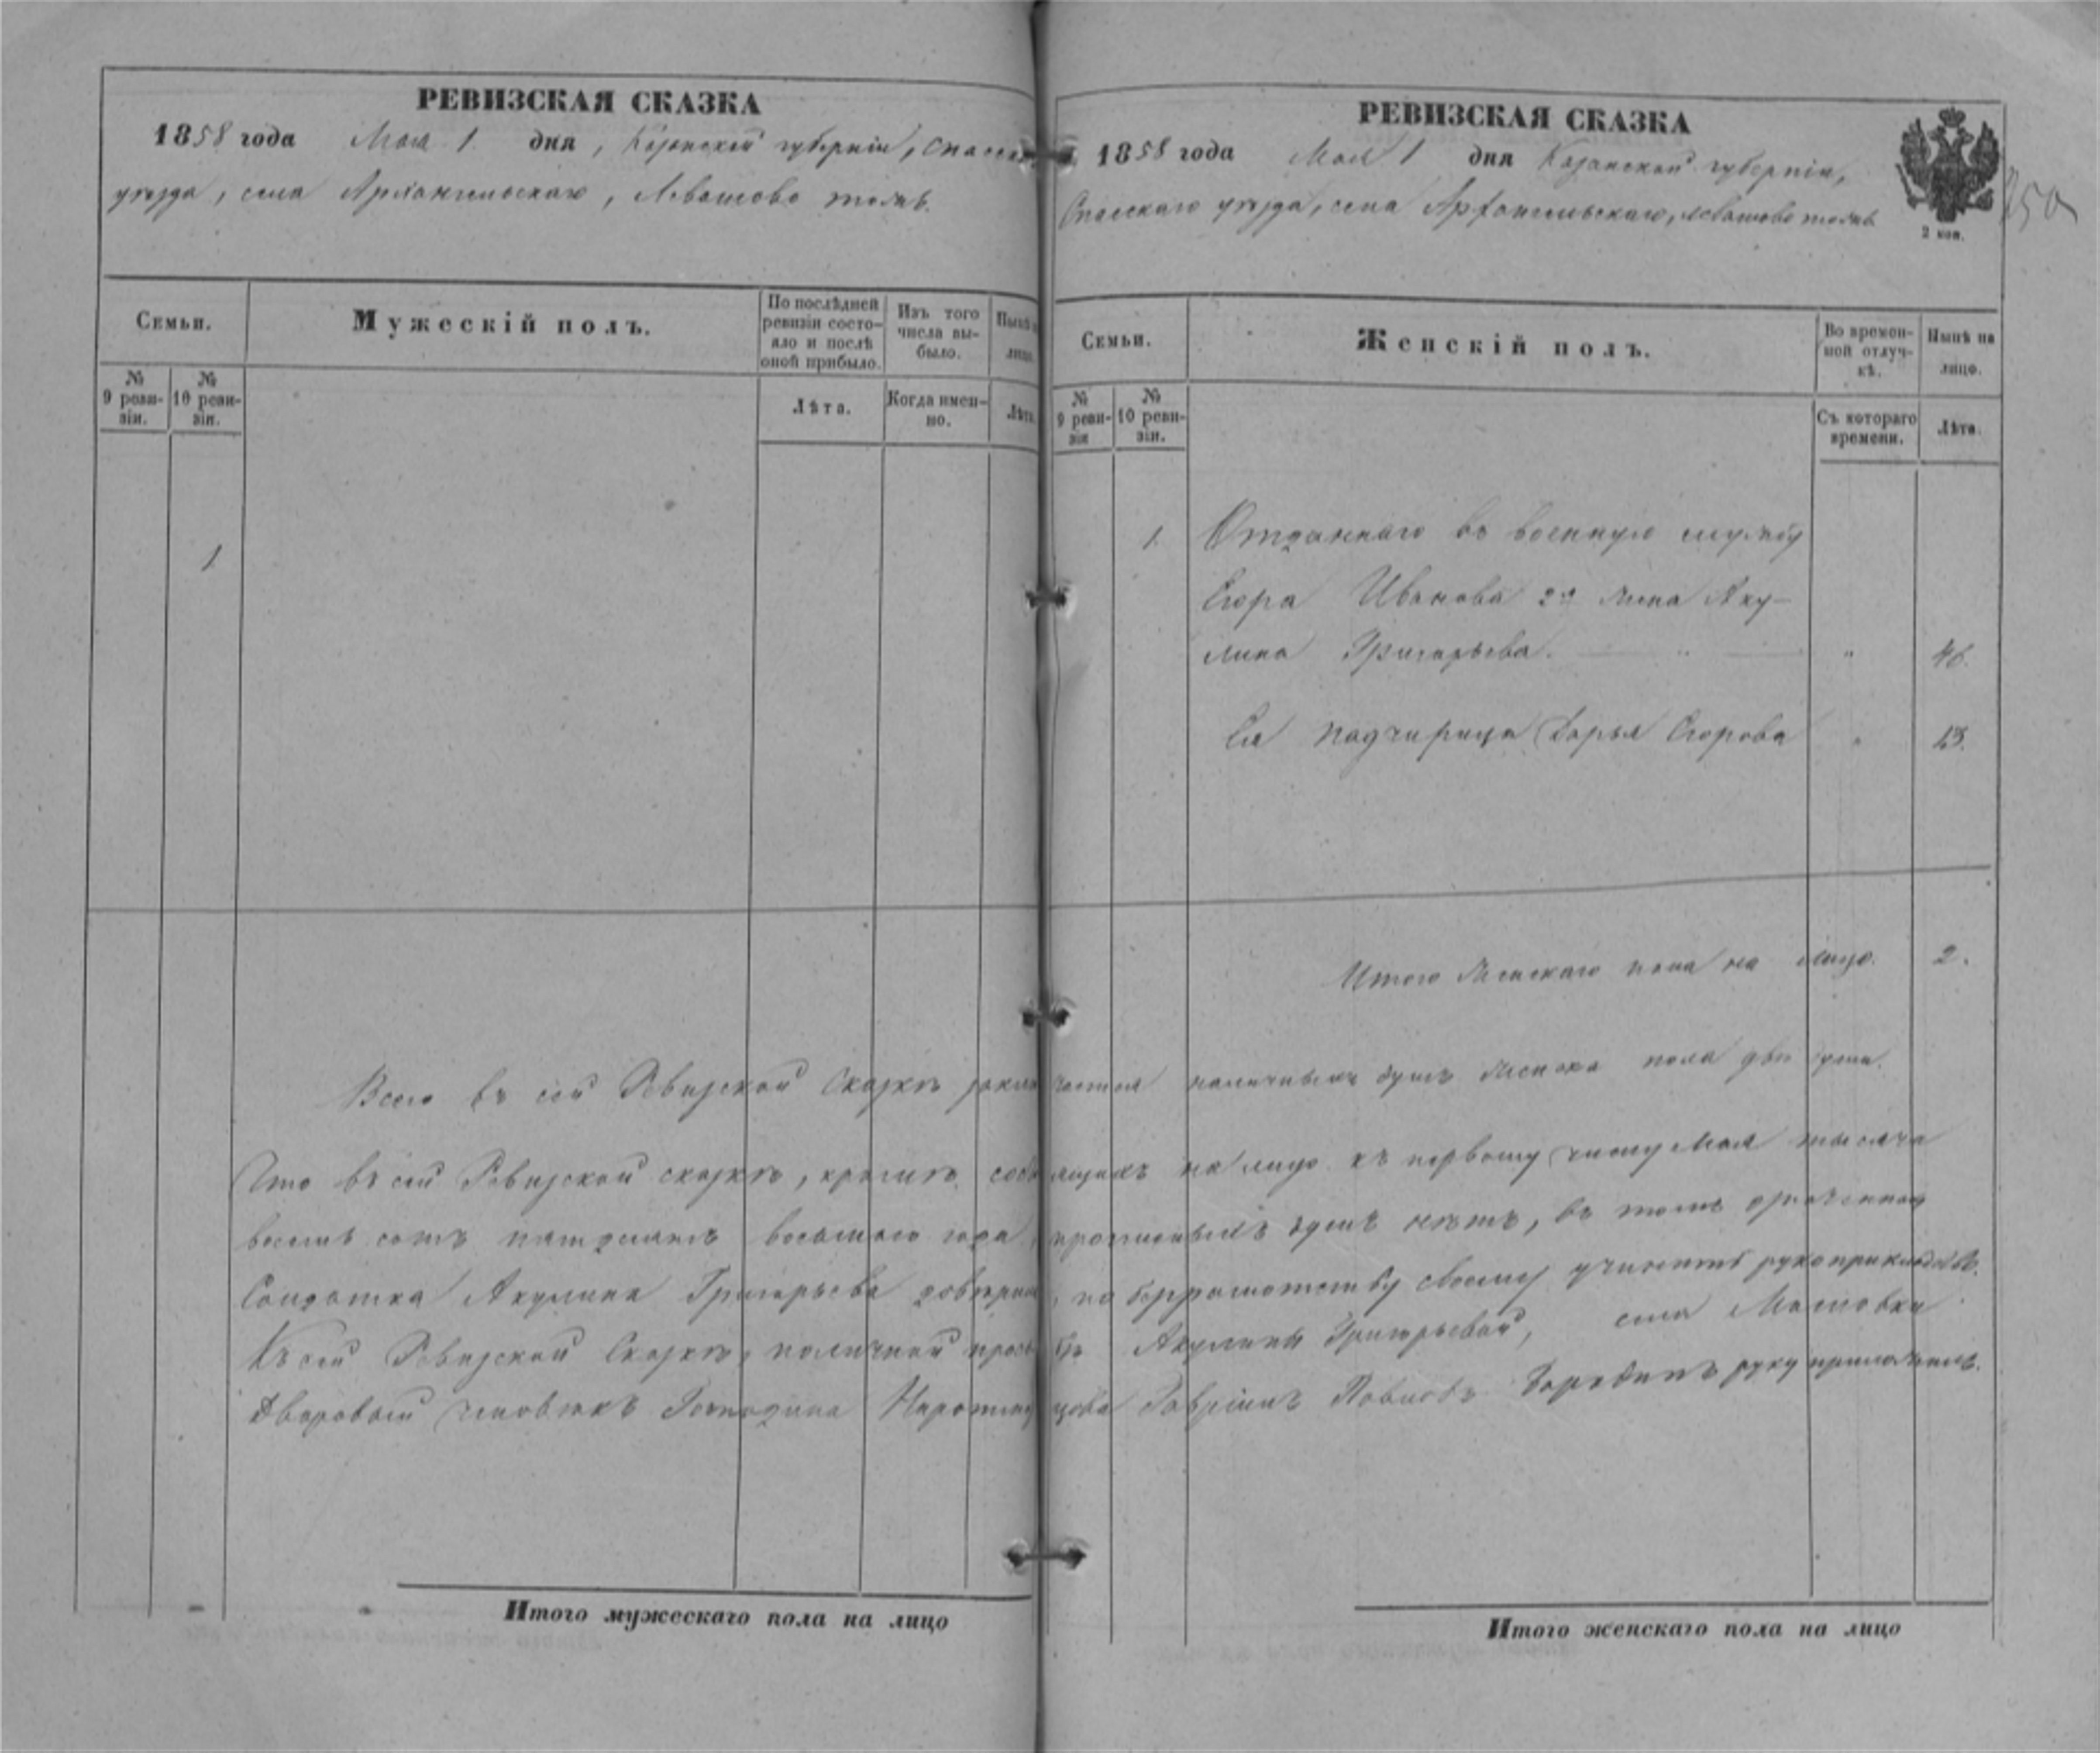 РЕВИЗСКАЯ СКАЗКА
1858 года Мая 1 дня, Казанской губерніи, Спасскаго
уѣзда, села Архангельскаго, Левашово тожъ.
Семьи.
Мужескій полъ.
По послѣдней ревизіи состо-
яло и послѣ оной прибыло.
Изъ того числа вы-
было.
Нынѣ на лицо.
№ 9 реви-
зіи.
№ 10 реви-
зіи.
Лѣта.
Когда имен-
но.
Лѣта.
1
Итого мужескаго пола на лицо
РЕВИЗСКАЯ СКАЗКА
1858 года Мая 1 дня Казанской губерніи,
Спасскаго уѣзда, села Архангельскаго, Левашово тожъ
2 коп.
250
Семьи.
Женскій полъ.
Во времен-
ной отлуч-
кѣ.
Нынѣ на
лицо.
№ 9 реви-
зіи
№ 10 реви-
зіи.
Съ котораго
времени.
Лѣта.
1. Отданнаго въ военную службу
Егора Иванова 2я жена Аку-
лина Григорьева. — " — " 46.
Ея падчирица Дарья Егорова " 13.
Итого Женскаго пола на лицо. 2.
Всего въ сей Ревизской Сказкѣ заключается наличныхъ душъ женска пола двѣ души.
Что въ сей Ревизской сказкѣ, кромѣ состоящихъ на лицо къ первому числу Мая тысяча
восемь сотъ пятдесятъ восьмаго года, прописныхъ душъ нѣтъ, въ томъ означенная
Солдатка Акулина Григорьева довѣрила, по безграмотству своему учинить рукоприкладств.
Къ сей Ревизской Сказкѣ, по личной прозьбѣ Акулины Григорьевой, села
Дворовый человѣкъ Господина Гаврилъ Павловъ руку приложилъ.
Итого женскаго пола на лицо